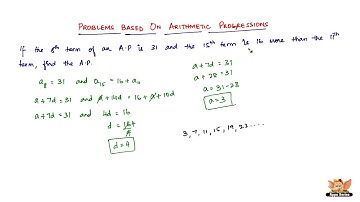 PROBLEMS BASED ON ARITHMETIC PROGRESSIONS
If the 8th term of an A.P is 31 and the 15th term is 16 more than the 11th
term, find the A.P.
a8 = 31 and a15 = 16 + a11
a + 7d = 31 and a + 14d = 16 + a + 10d
a + 7d = 31 and 4d = 16
d = 16/4
d = 4
a + 7d = 31
a + 28 = 31
a = 31 - 28
a = 3
3, 7, 11, 15, 19, 23 .....